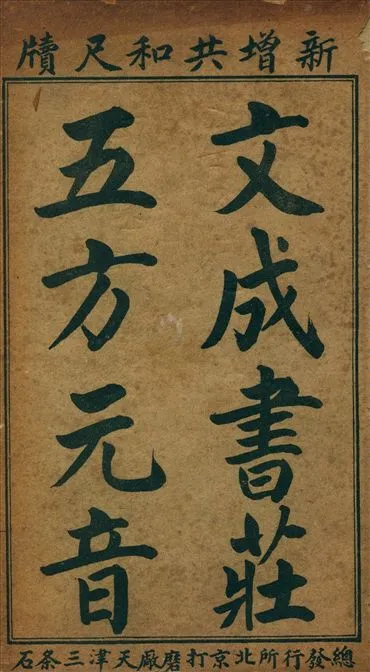 新增共和尺牘
文成書莊
五方元音
總發行所北京打磨廠天津三条石